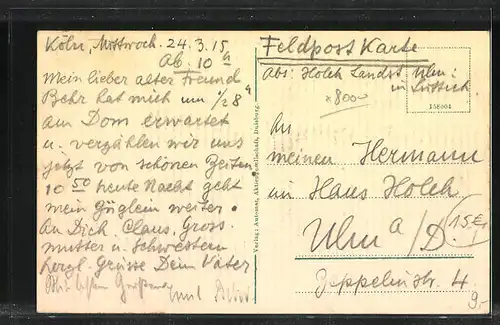 Köln, Mittwoch. 24.3.15
Ab. 10 h
Mein lieber alter Freund
Behr hat mich um 1/2 8 h
am Dom erwartet
u. verzählen wir uns
jetzt von schönen Zeiten
10 50 heute Nacht geht
mein Züglein weiter.
An Dich, Claus, Gross-
mutter u. Schwestern
herzl. Grüsse Dein Vater
Verlag: Automat, Aktien-Gesellschaft, Duisburg.
Feldpost Karte
Abs: Holch Landst. Ulm:
in Lüttich
x8000
158604
An
meinen Hermann
im Haus Holch
Ulm a/D.
15 €
Zeppelinstr. 4
9,-